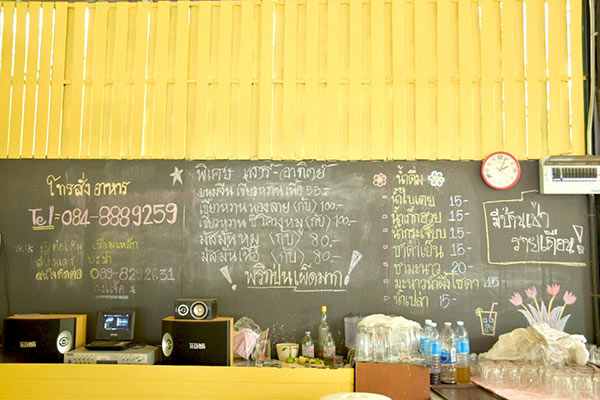 โทรสั่งอาหาร
Tel-084-8889259
สนใจติดต่อ 089-8292631
พิเศษ เสาร์-อาทิตย์
ขนมจีน เขียวหวาน เนื้อ 55.-
เขียวหวาน หอยลาย (กับ) 100.-
เขียวหวาน ซี่โครงหมู (กับ) 100.-
มัสมั่น หมู (กับ) 80.-
มัสมั่น เจ (กับ) 80.-
พริกป่นเผ็ดมาก!
น้ำดื่ม
น้ำใบเตย 15-
น้ำเก๊กฮวย 15-
น้ำกระเจี๊ยบ 15-
ชาดำเย็น 15-
ชามะนาว 20-
มะนาวน้ำผึ้งโซดา 25-
น้ำเปล่า 15-
มีบ้านเช่า
รายเดือน!